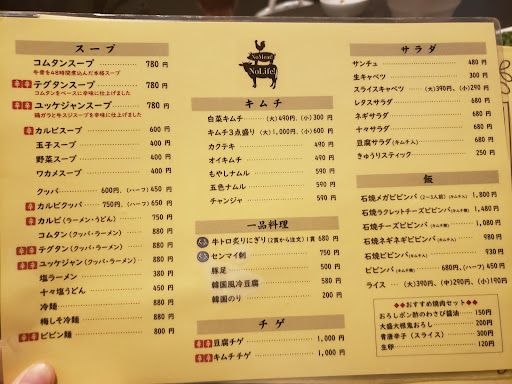 スープ
コムタンスープ 780 円
牛骨を48時間煮込んだ本格スープ
辛辛 テグタンスープ 780 円
コムタンをベースに辛味に仕上げました
辛辛 ユッケジャンスープ 780 円
鶏ガラと牛スジスープを辛味に仕上げました
辛 カルビスープ 600 円
玉子スープ 400 円
野菜スープ 400 円
ワカメスープ 400 円
クッパ 600円、(ハーフ) 450 円
辛 カルビクッパ 750円、(ハーフ) 650 円
辛 カルビ(ラーメン・うどん) 750 円
コムタン(クッパ・ラーメン) 880 円
辛 テグタン(クッパ・ラーメン) 880 円
辛 ユッケジャン(クッパ・ラーメン) 880 円
塩ラーメン 380 円
十々塩うどん 450 円
冷麺 800 円
梅しそ冷麺 880 円
辛 ビビン麺 800 円
NoMeat
NoLife!
キムチ
白菜キムチ (大)490円、(小)300 円
キムチ3点盛り (大)1,000円、(小)600 円
カクテキ 490 円
オイキムチ 490 円
もやしナムル 590 円
五色ナムル 590 円
チャンジャ 590 円
一品料理
牛トロ炙りにぎり(2貫から注文) 1貫 680 円
センマイ刺 750 円
豚足 500 円
韓国風冷豆腐 580 円
韓国のり 200 円
チゲ
辛 豆腐チゲ 1,000 円
辛 キムチチゲ 1,000 円
サラダ
サンチュ 480 円
生キャベツ 300 円
スライスキャベツ (大)390円、(小)290 円
レタスサラダ 480 円
ネギサラダ 480 円
十々サラダ 500 円
豆腐サラダ(キムチ入) 680 円
きゅうりスティック 250 円
飯
石焼メガビビンバ(2〜3人前)(キムチ入) 1,800 円
石焼ラクレットチーズビビンバ(キムチ無) 1,480 円
石焼チーズビビンバ(キムチ入) 1,080 円
石焼ネギネギビビンバ(キムチ無) 980 円
石焼ビビンバ(キムチ入) 930 円
ビビンバ(キムチ入) 680円、(ハーフ) 450 円
ライス (大)390円、(中)290円、(小)190 円
◆◆おすすめ焼肉セット◆◆
おろしポン酢のわさび醤油 150円
大盛大根鬼おろし 200円
青唐辛子(スライス) 300円
生卵 120円